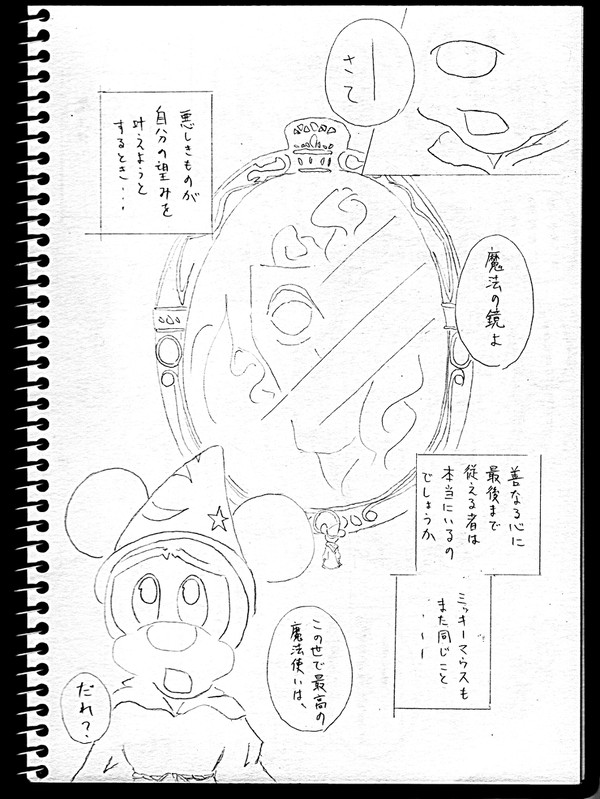 さて
悪しきものが
自分の望みを
叶えようと
するとき・・・
魔法の鏡よ
善なる心に
最後まで
従える者は
本当にいるの
でしょうか
ミッキーマウスも
また同じこと
ーー
この世で最高の
魔法使いは、
だれ？